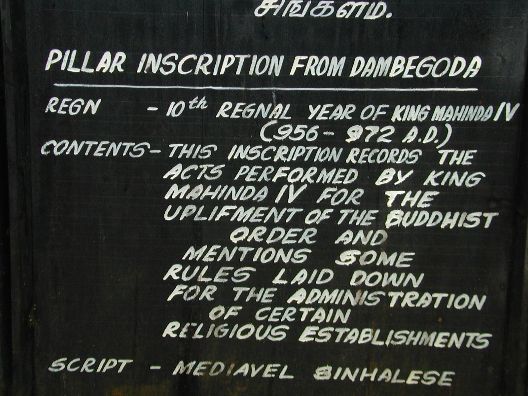 சங்கதாம்.
PILLAR INSCRIPTION FROM DAMBEGODA
REGN - 10th REGNAL YEAR OF KING MAHINDA IV
(956 - 972 A.D.)
CONTENTS - THIS INSCRIPTION RECORDS THE
ACTS PERFORMED BY KING
MAHINDA IV FOR THE
UPLIFMENT OF THE BUDDHIST
ORDER AND
MENTIONS SOME
RULES LAID DOWN
FOR THE ADMINISTRATION
OF CERTAIN
RELIGIOUS ESTABLISHMENTS
SCRIPT - MEDIAVEL SINHALESE